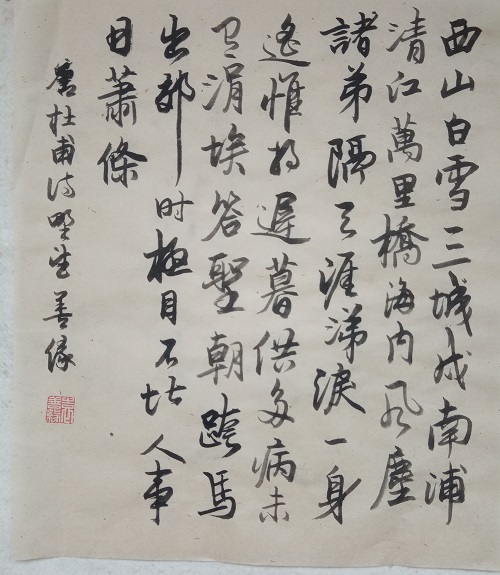 西山白雪三城戍南浦
清江萬里橋海内风塵
諸弟隔天涯涕淚一身
遙惟將遲暮供多病未
有涓埃答聖朝跨馬
出郊时極目不堪人事
日蕭條
唐杜甫诗野望善缘